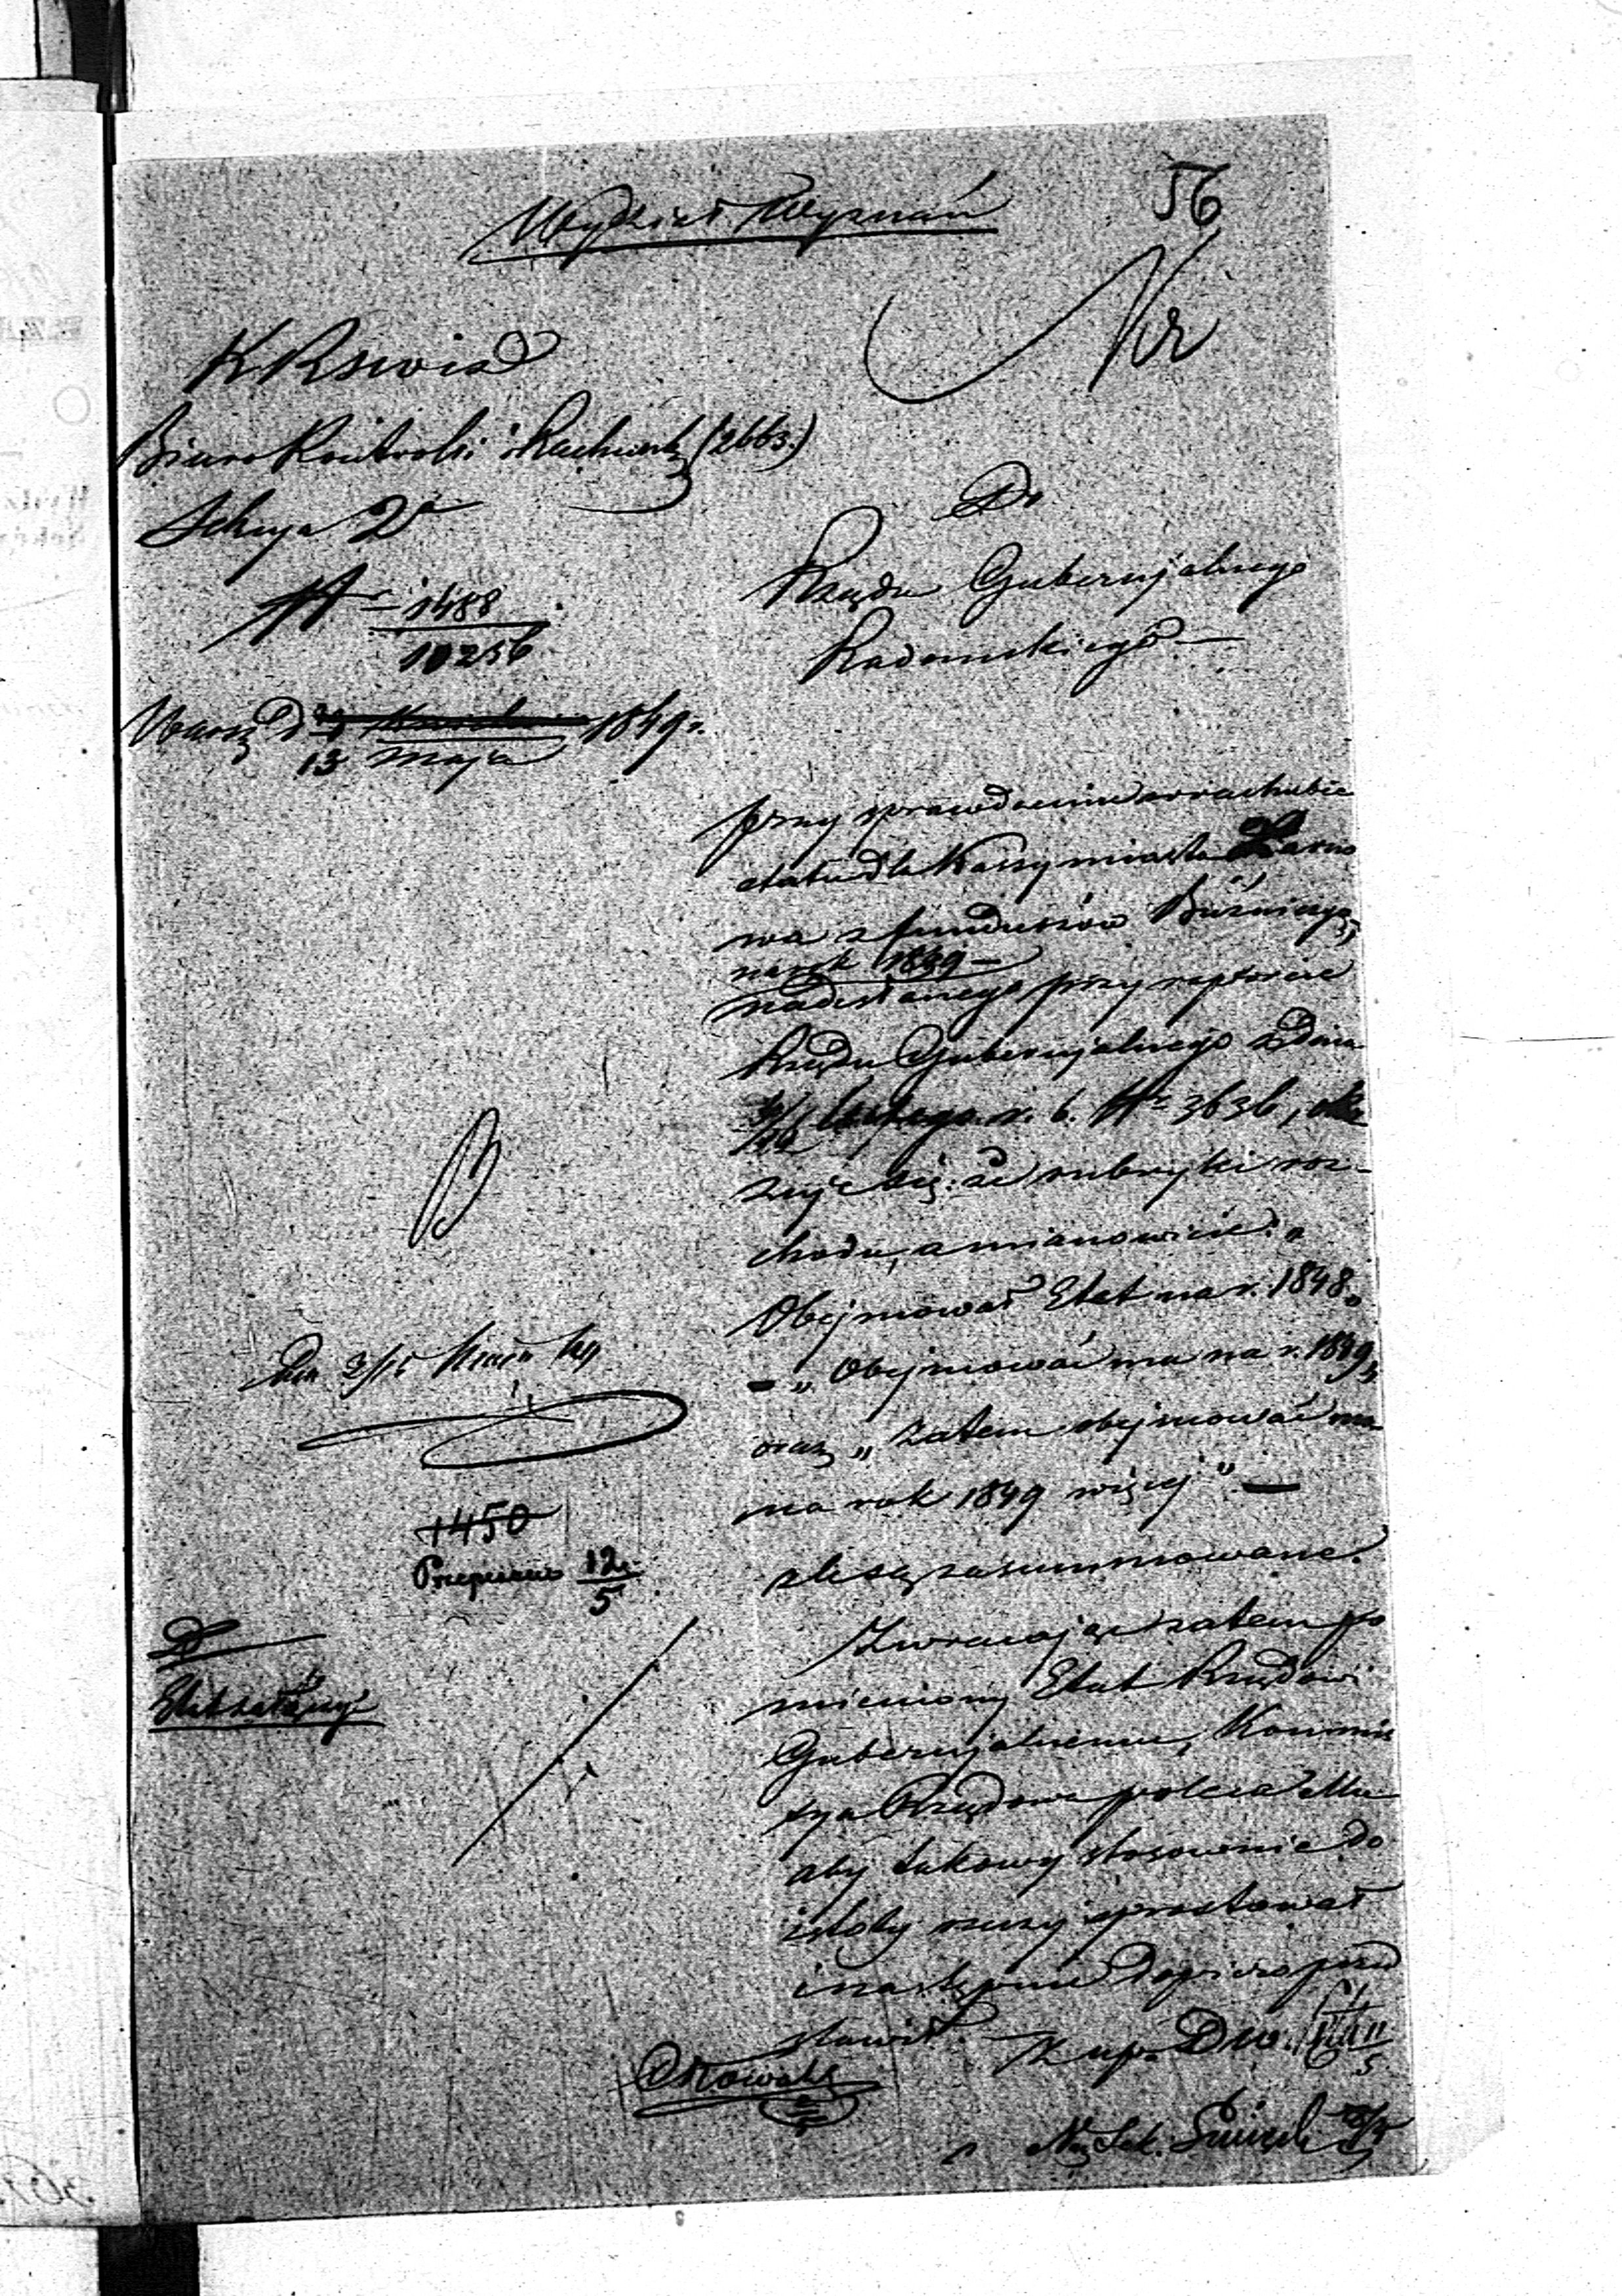 56
Wydział Wyznań
Nr
KRSWiD
Biuro Kontroli i Rachunk (2663.)
Sekcya 2ª
Nr 1488
10256
Warsz d 13 Maja 1849 r.
Do
Rządu Gubernjalnego
Radomskiego
Przy sprawdzeniu w rachubie
etatu dla Kassy miasta Żarno
wa z funduszów Bóźniczych
na rok 1849 —
nadesłanego przy raporcie
Rządu Gubernjalnego z dnia
r. b. Nr 3636, oka
zuje się: że rubryki roz-
chodu, a mianowicie: „
Obejmował Etat na r. 1848„
— „Obejmować ma na r. 1849„
oraz „Zatem obejmować ma
na rok 1849 więcej" —
źle są zasummowane.
Zwracając zatem po
mieniony Etat Rządowi
Gubernjalnemu, Kommis
sya Rządowa poleca Mu
aby takowy stosownie do
istoty rzeczy sprostował
i następnie dopiero przed
stawił.
1450
Przepisano 12/5
D
Etat załączyć
Nowak
Zup. Dw.
Nacz. Sek.